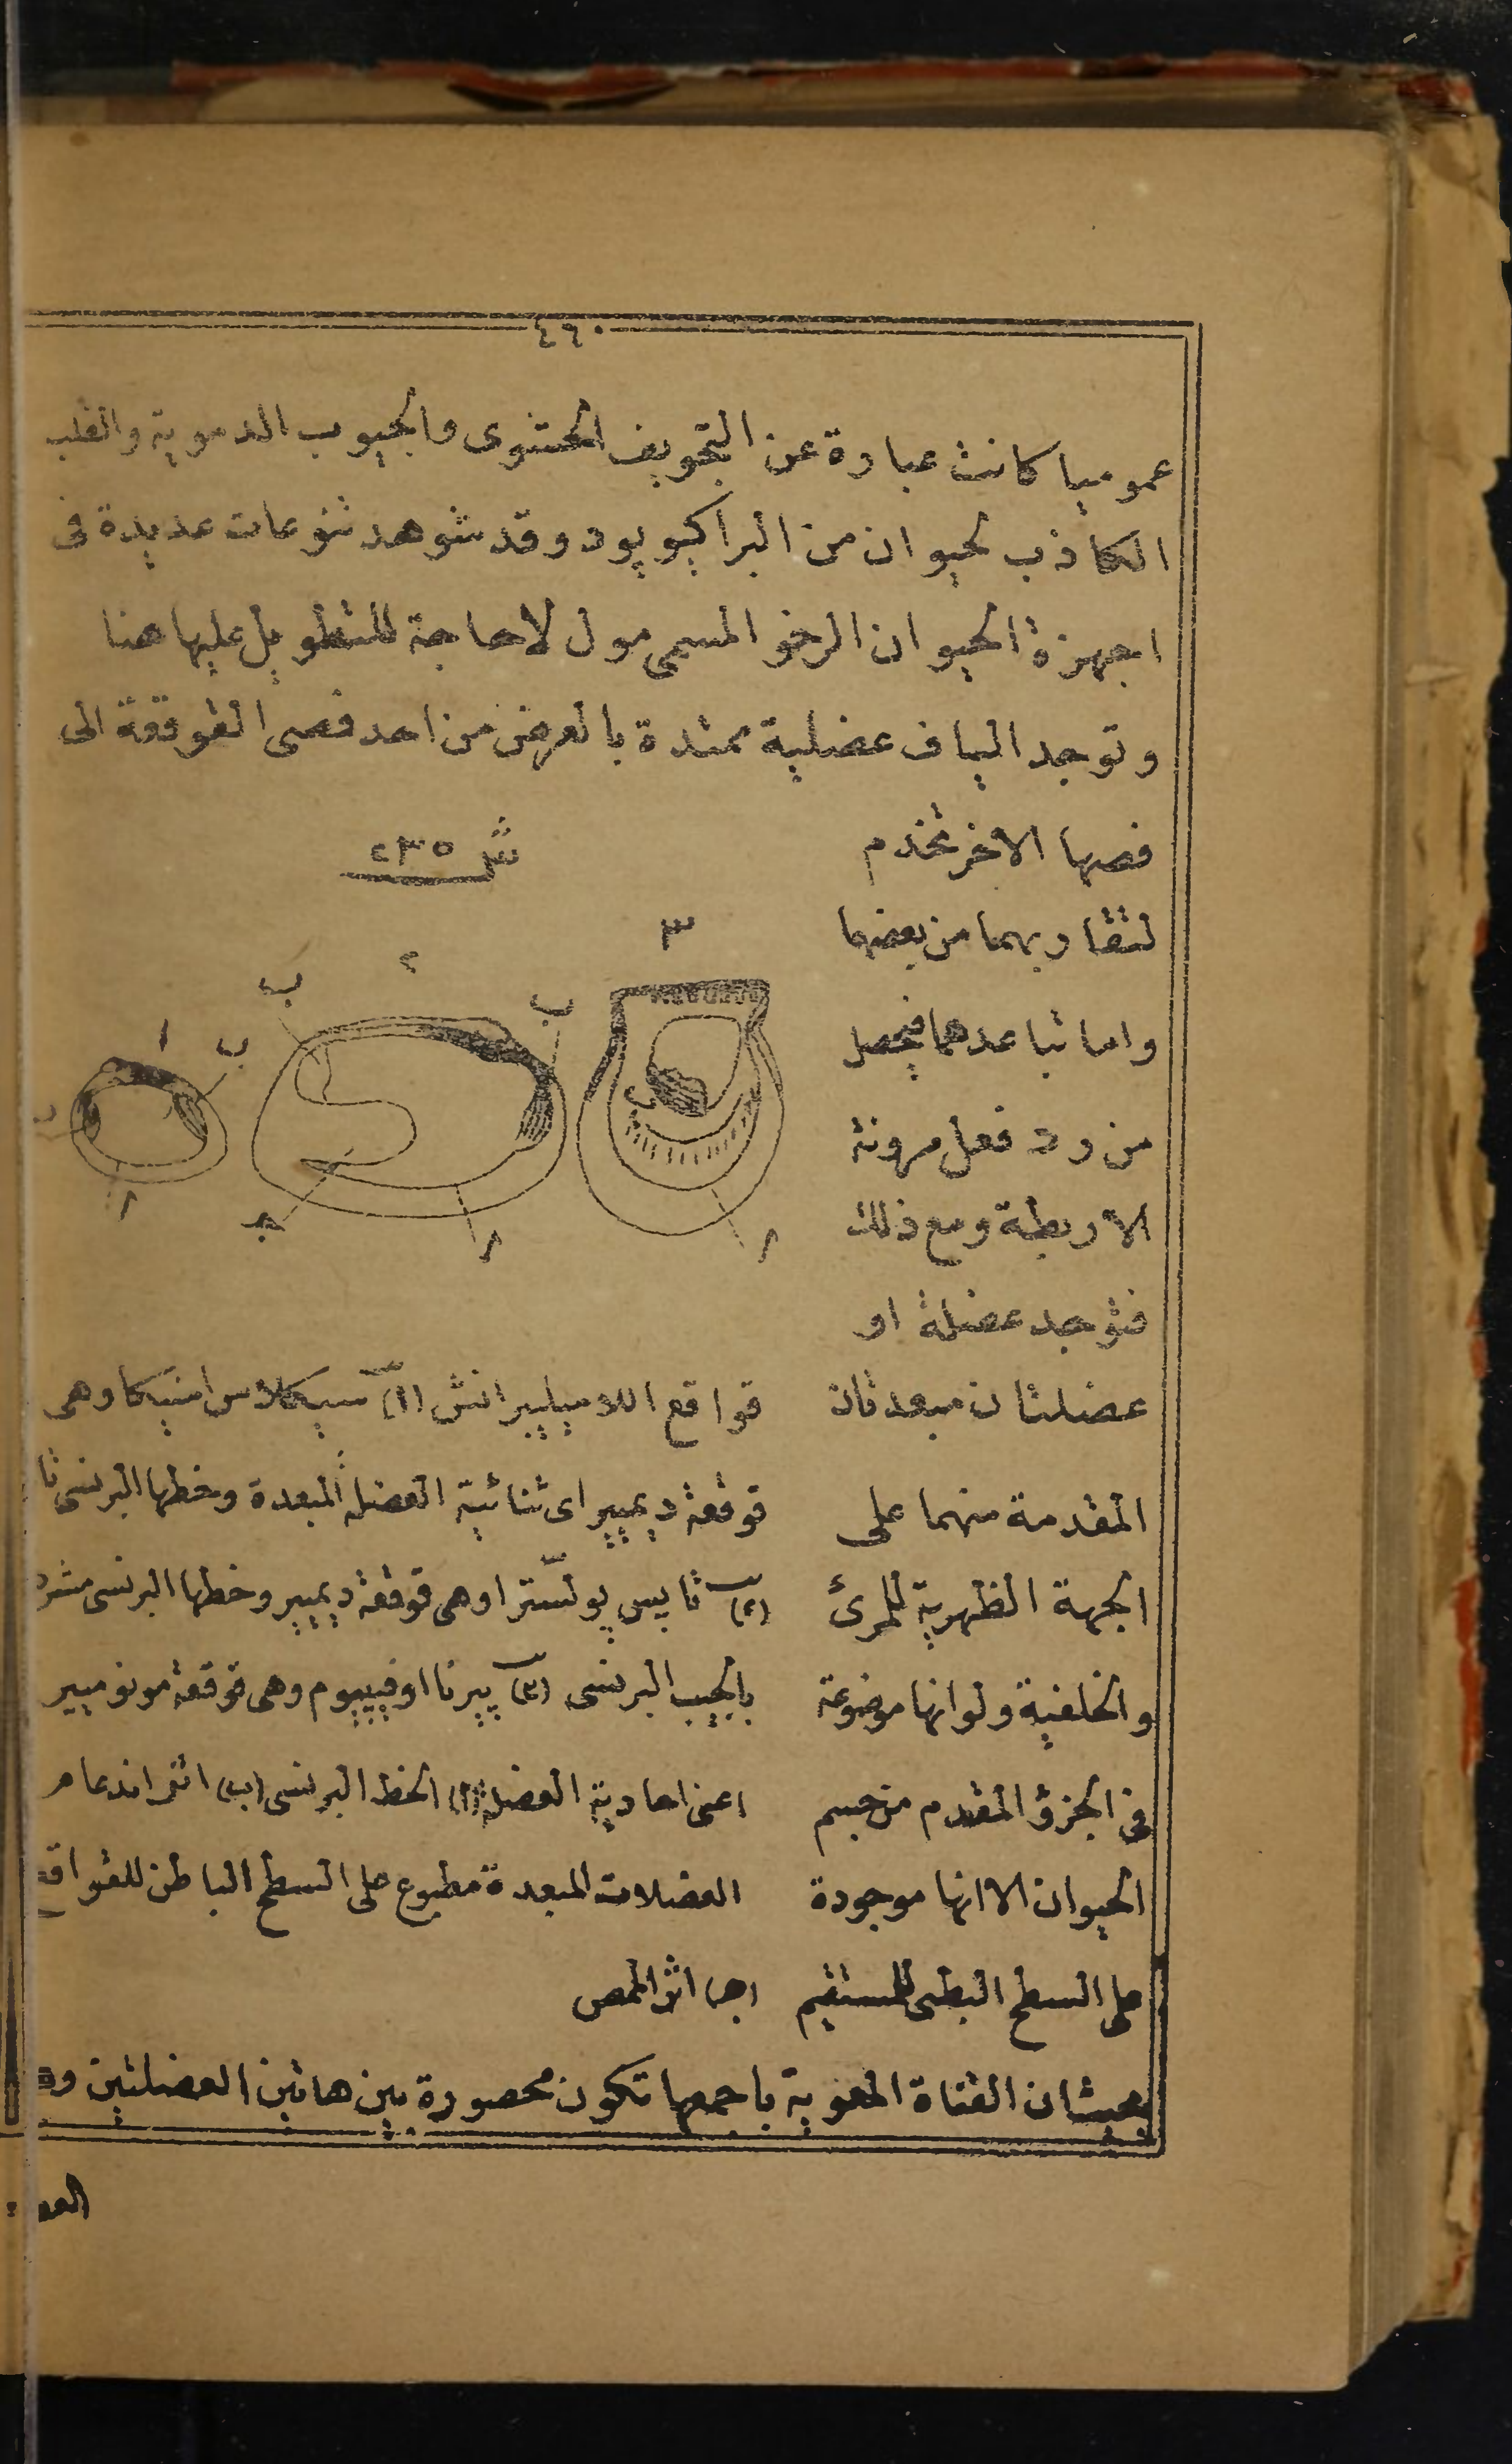 ٤٦٠
عموميا كانت عبارة عن التجويف الحشوى والجيوب الدموية والقلب
الكاذب لحيوان من البراكيوپود وقد شوهد تنوعات عديدة فى
اجهزة الحيوان الرخو المسمى مول لاحاجة للتطويل عليها هنا
وتوجد الياف عضلية ممتدة بالعرض من احد فصى القوقعة الى
فصها الاخر تخذم
لتقاربهما من بعضهما
واما تباعدهما فيحصل
من رد فعل مرونة
الاربطة ومع ذلك
فتوجد عضلة او
عضلتان مبعدتان
المقدمة منهما على
الجهة الظهرية للمرئ
والخلفية ولوانها موضوعة
فى الجزؤ المقدم من جسم
الحيوان الا انها موجودة
على السطح البطنى للمستقيم
ش ٢٣٥
٣
٢
ب
ب
١
ب
ب
ب
ا
ج
ا
ا
قواقع اللاميليبرانش (١) سيكلاس امنيكا وهى
قوقعة ديميير اى ثنائية العضلة المبعدة وخطها البرنسى تا
(٢) تاپس پولسترا وهى قوقعة ديميير وخطها البرنسى مشرد
بالجيب البرنسى (٣) پيرنا اوفيپيوم وهى قوقعة مونوميير
اعنى احادية العضلة (ا) الخط البرنسى (ب) اثر اندعام
العضلات المبعدة مطبوع على السطح الباطن للقواقع
(ج) اثر الممص
بحيث ان القناة المعوية باجمعها تكون محصورة بين هاتين العضلتين